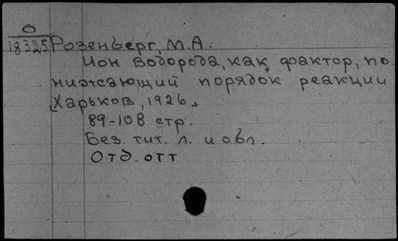 О
18325 Розенберг, М.А.
Ион водорода, как фактор, по
нижающий порядок реакции
Харьков, 1926.
89-108 стр.
Без тит. л. и обл.
Отд. отт